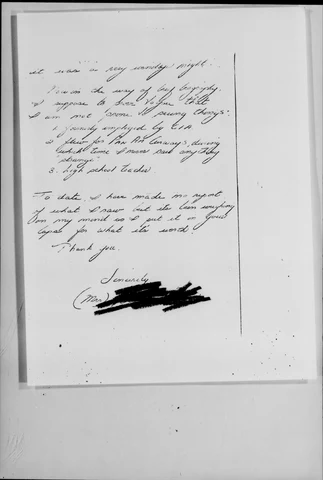 it was a very windy night.
Now in the way of
I suppose to
I am not prone to seeing things:
1. formerly employed by CIA
2. flew for Pan Am Airways during
which time I never saw anything
"strange"
3. high school teacher
To date, I have made no report
of what I saw but its been weighing
on my mind so I put it in your
lapse for what its worth.
Thank you.
Sincerely
(Mrs.)